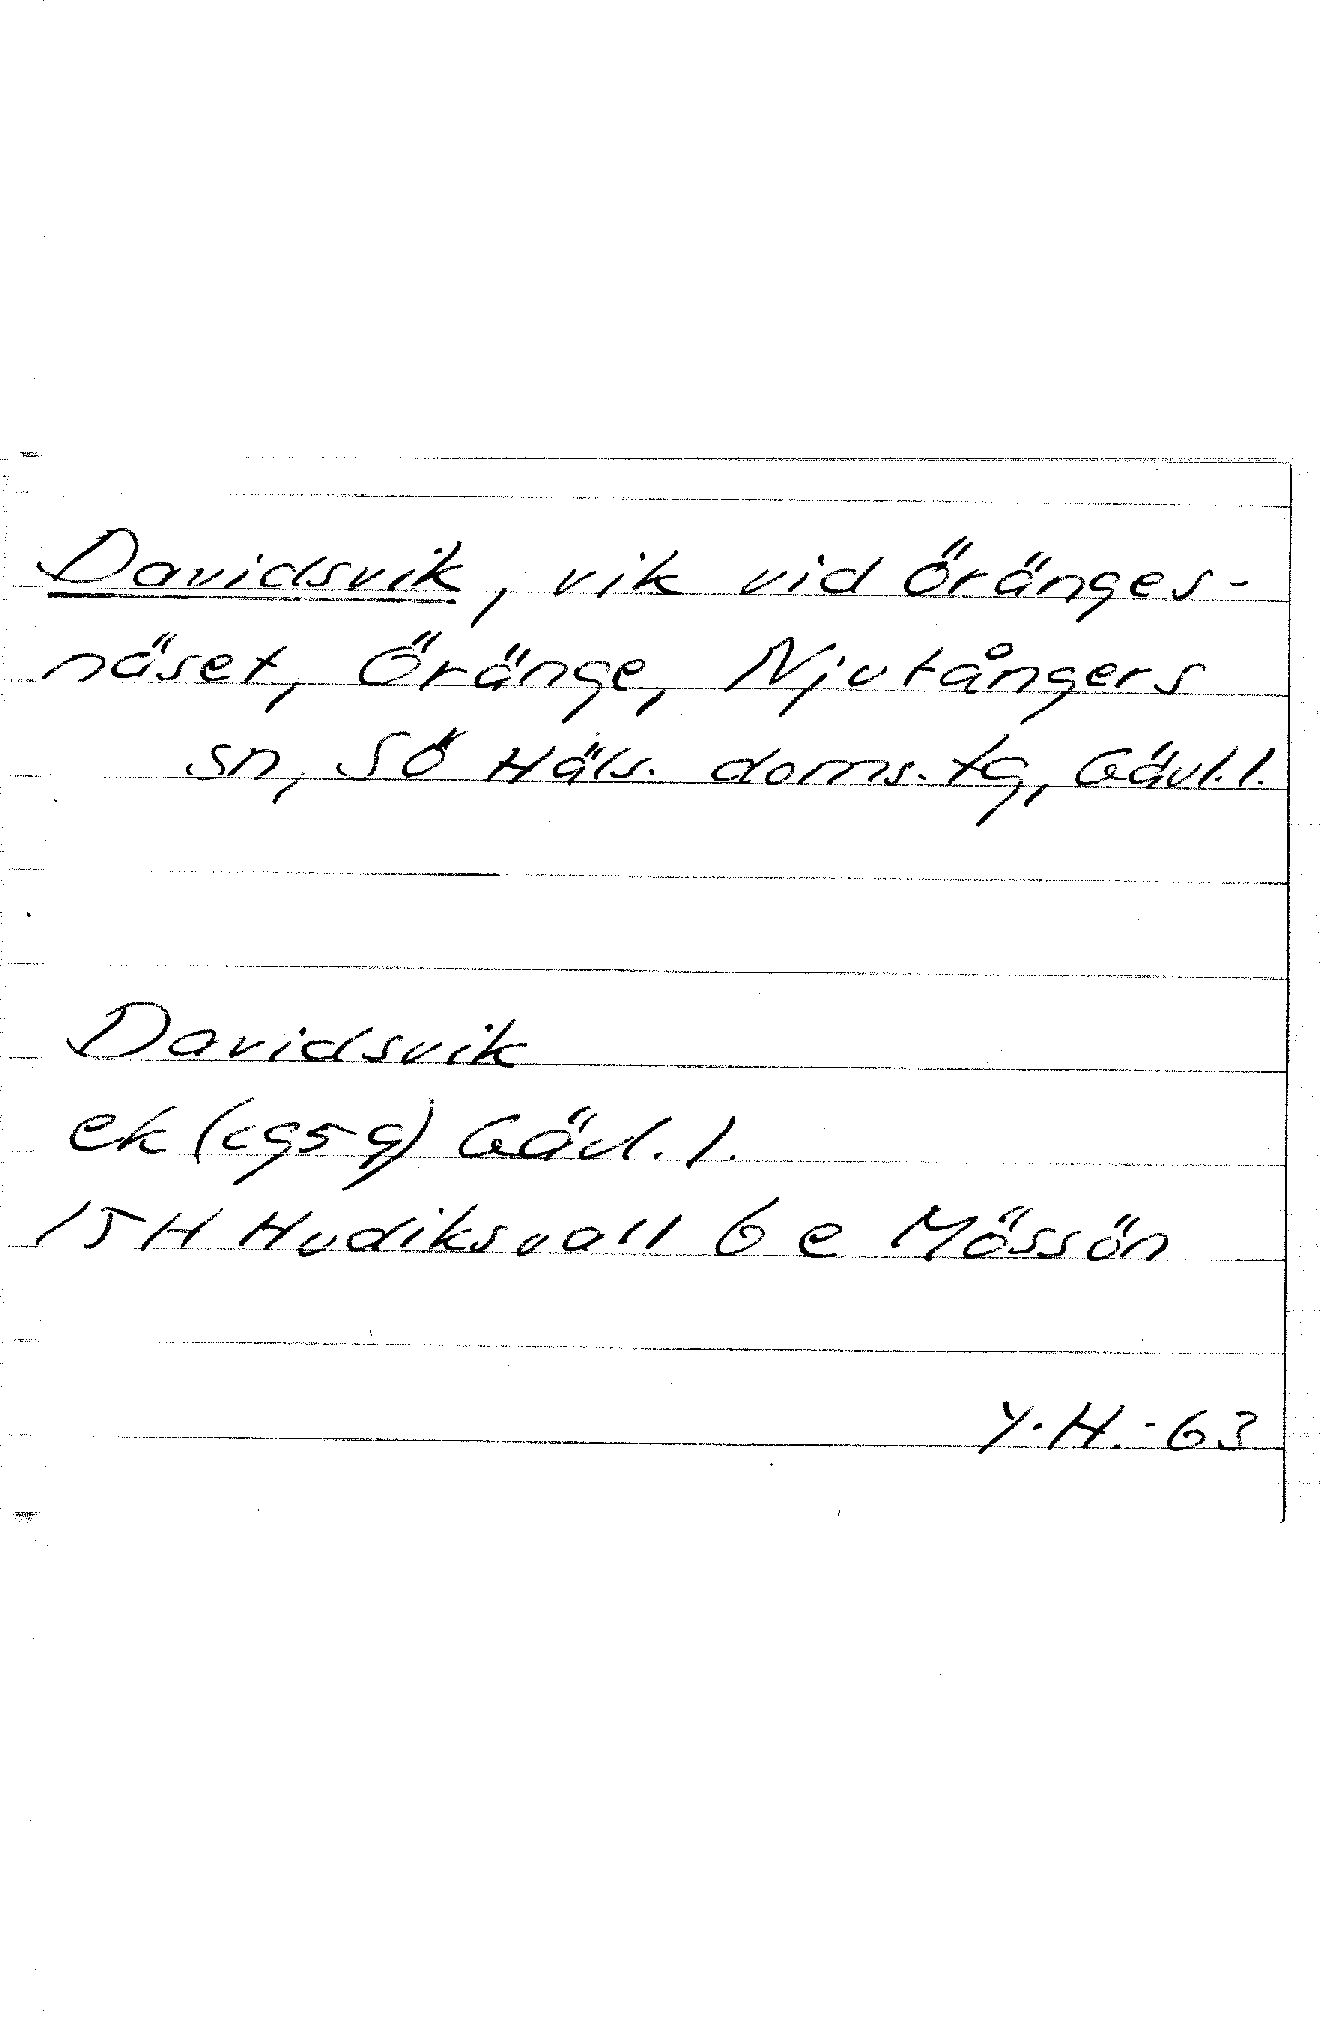 Davidsvik, vik vid Öränges-
näset, Öränge, Njutångers
sn, SÖ Häls. doms. tg, Gävl. l.
Davidsvik
ek (c959) Gävl. l.
15H Hudiksvall 6 e Mössön
Y.H. -63